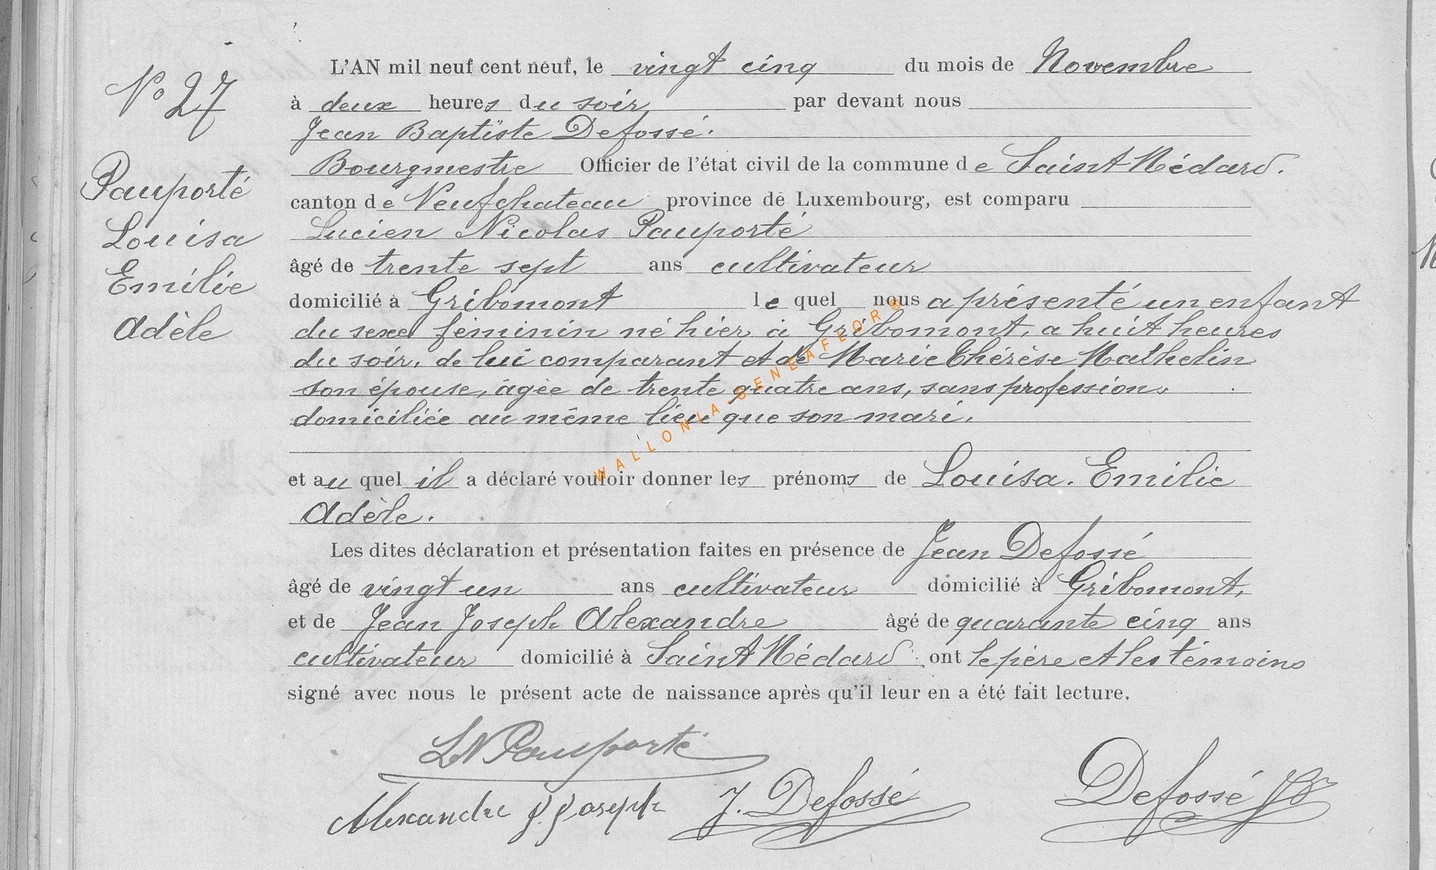 N° 27
Pauporté
Louisa
Emilie
Adèle
L'AN mil neuf cent neuf, le vingt cinq du mois de Novembre
à deux heures du soir par devant nous
Jean Baptiste Defossé.
Bourgmestre Officier de l'état civil de la commune de Saint Médard.
canton de Neufchateau province de Luxembourg, est comparu
Lucien Nicolas Pauporté
âgé de trente sept ans cultivateur
domicilié à Gribomont le quel nous a présenté un enfant
du sexe féminin né hier à Gribomont, a huit heures
du soir, de lui comparant et de Marie Thérèse Mathelin
son épouse, âgée de trente quatre ans, sans profession,
domiciliée au même lieu que son mari.
et au quel il a déclaré vouloir donner les prénoms de Louisa. Emilie
Adèle.
Les dites déclaration et présentation faites en présence de Jean Defossé
âgé de vingt un ans cultivateur domicilié à Gribomont,
et de Jean Joseph Alexandre âgé de quarante cinq ans
cultivateur domicilié à Saint Médard ont le père et les témoins
signé avec nous le présent acte de naissance après qu'il leur en a été fait lecture.
LN Pauporté
Alexandre J. Joseph J. Defossé Defossé JB
WALLONIA GENEAFEORB